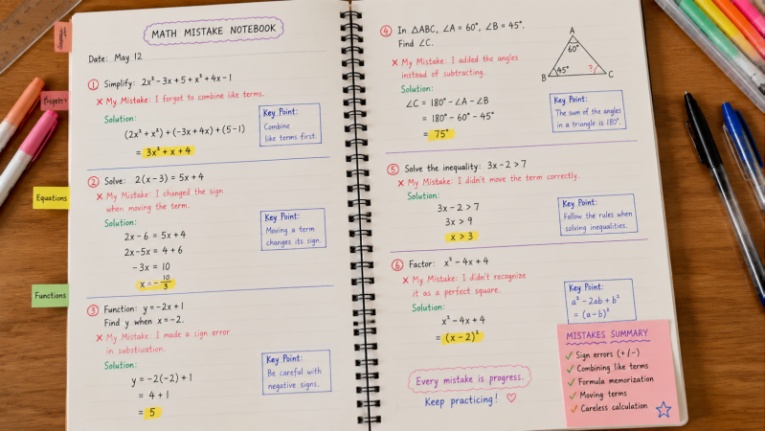 MATH MISTAKE NOTEBOOK
Date: May 12
① Simplify: 2x² - 3x + 5 + x² + 4x - 1
× My Mistake: I forgot to combine like terms.
Solution:
(2x² + x²) + (-3x + 4x) + (5 - 1)
= 3x² + x + 4
Key Point:
Combine
like terms first.
② Solve: 2(x - 3) = 5x + 4
× My Mistake: I changed the sign
when moving the term.
Solution:
2x - 6 = 5x + 4
2x - 5x = 4 + 6
-3x = 10
x = -10/3
Key Point:
Moving a term
changes its sign.
③ Function: y = -2x + 1
Find y when x = -2.
× My Mistake: I made a sign error
in substitution.
Solution:
y = -2(-2) + 1
= 4 + 1
= 5
Key Point:
Be careful with
negative signs.
Equations
Functions
④ In △ABC, ∠A = 60°, ∠B = 45°.
Find ∠C.
× My Mistake: I added the angles
instead of subtracting.
Solution:
∠C = 180° - ∠A - ∠B
= 180° - 60° - 45°
= 75°
A
60°
B 45° ? C
Key Point:
The sum of the angles
in a triangle is 180°.
⑤ Solve the inequality: 3x - 2 > 7
× My Mistake: I didn't move the term correctly.
Solution:
3x - 2 > 7
3x > 9
x > 3
Key Point:
Follow the rules when
solving inequalities.
⑥ Factor: x² - 4x + 4
× My Mistake: I didn't recognize
it as a perfect square.
Solution:
x² - 4x + 4
= (x - 2)²
Key Point:
a² - 2ab + b²
= (a - b)²
Every mistake is progress.
Keep practicing! ♡
MISTAKES SUMMARY
✓ Sign errors (+/-)
✓ Combining like terms
✓ Formula memorization
✓ Moving terms
✓ Careless calculation